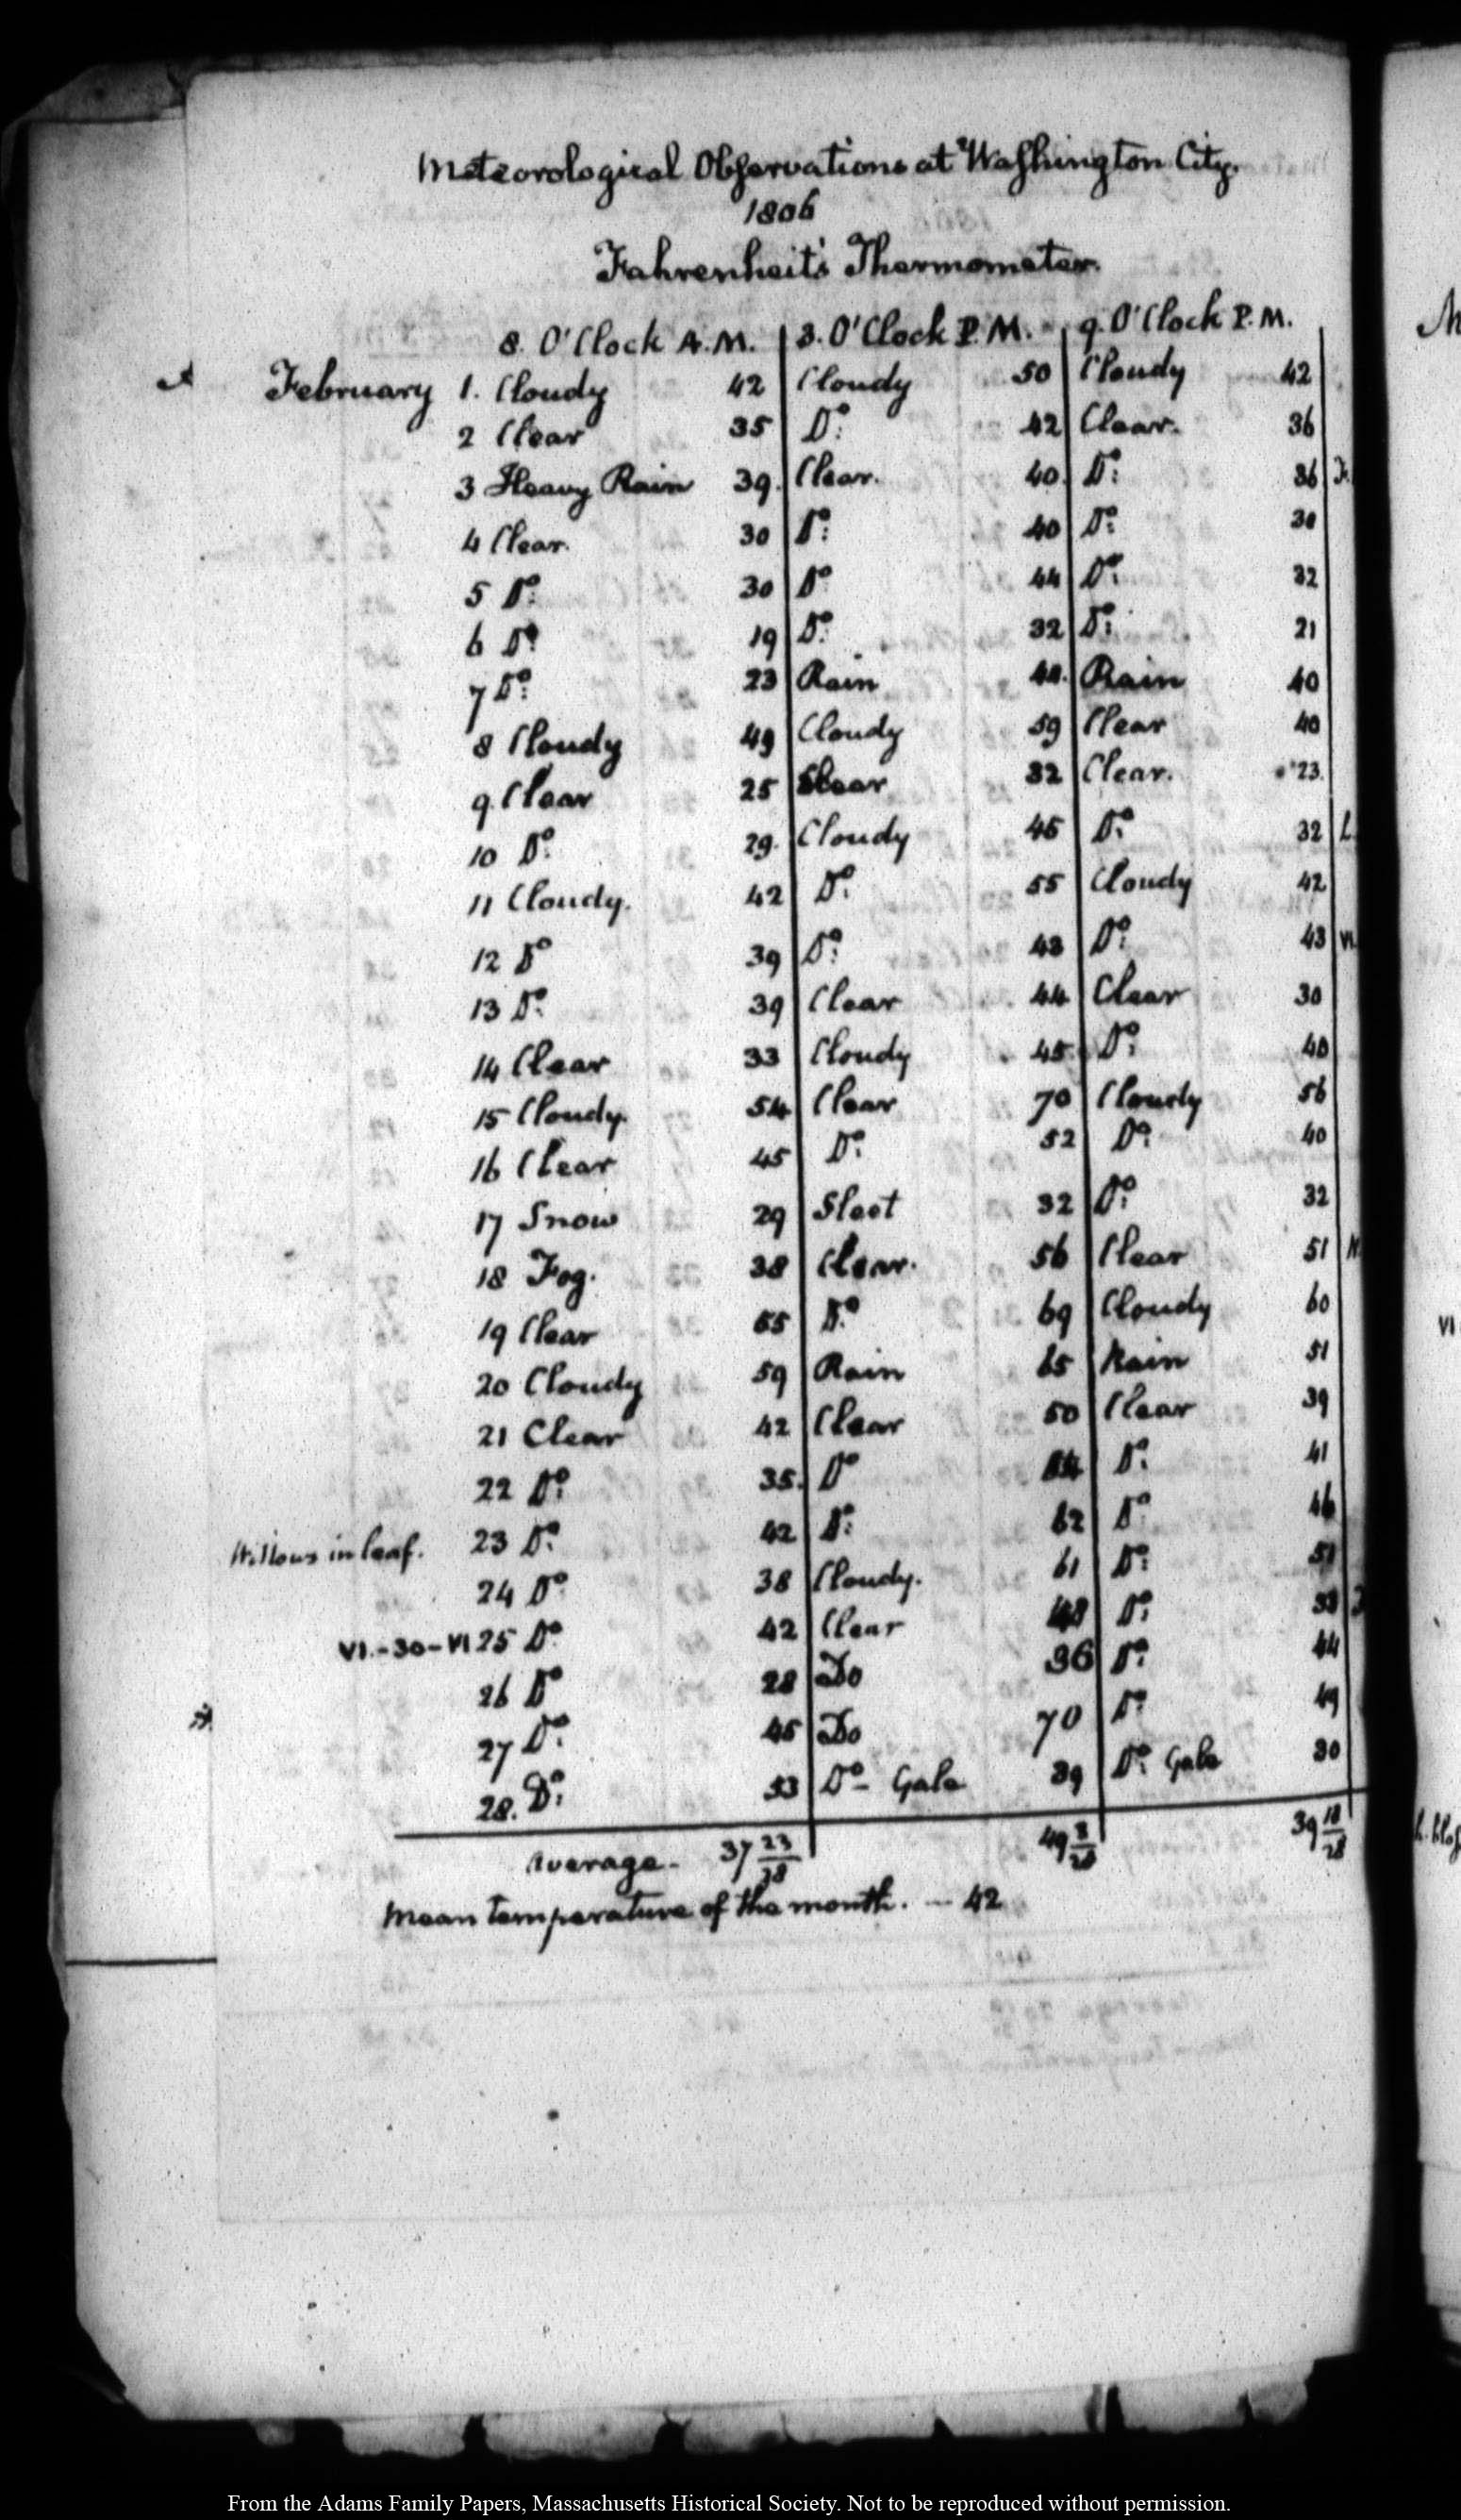 Meteorological Observations at Washington City.
1806
Fahrenheit's Thermometer.
8. O'Clock A.M. 3. O'Clock P.M. 9. O'Clock P.M.
February 1. Cloudy 42 Cloudy 50 Cloudy 42
2 Clear 35 Do: 42 Clear. 36
3 Heavy Rain 39. Clear. 40. Do: 36
4 Clear. 30 Do: 40 Do: 30
5 Do: 30 Do 44 Do: 32
6 Do: 19 Do: 32 Do: 21
7 Do: 23 Rain Rain 40
8 Cloudy 49 Cloudy 59 Clear 40
9. Clear 25 Clear 32 Clear. 23.
10 Do: 29. Cloudy 45 Do: 32
11 Cloudy. 42 Do: 55 Cloudy 42
12 Do 39 Do: 43 Do: 43
13 Do: 39 Clear 44 Clear 30
14 Clear 33 Cloudy 45 Do: 40
15 Cloudy. 54 Clear 70 Cloudy 56
16 Clear 45 Do: 52 Do: 40
17 Snow 29 Sleet 32 Do: 32
18 Fog. 38 Clear. 56 Clear 51
19 Clear 55 Do: 69 Cloudy 60
20 Cloudy 59 Rain 65 Rain 51
21 Clear 42 Clear 50 Clear 39
22 Do: 35. Do Do: 41
Willows in leaf. 23 Do: 42 Do: 62 Do: 46
24 Do: 38 Cloudy. 61 Do: 51
VI.-30-VI 25 Do: 42 Clear Do:
26 Do 28 Do 36 Do: 44
27 Do: 45 Do 70 Do: 49
28. Do: 33 Do- Gale 39 Do: Gale 30
Average- 37 23/28 49 3/28 39 18/28
Mean temperature of the month. - 42
From the Adams Family Papers, Massachusetts Historical Society. Not to be reproduced without permission.